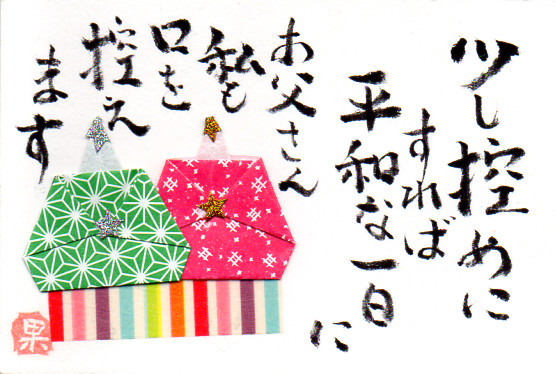 少し控めに
すれば
平和な一日
に
お父さん
私も
口を
控え
ます
果